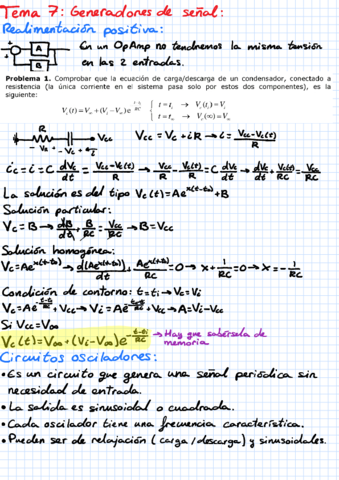 Tema 7: Generadores de señal:
Realimentación positiva:
A
B
En un OpAmp no tendremos la misma tensión
en las 2 entradas.
Problema 1. Comprobar que la ecuación de carga/descarga de un condensador, conectado a
resistencia (la única corriente en el sistema pasa solo por estos dos componentes), es la
siguiente:
V_c(t) = V_∞ + (V_i - V_∞) e^(-(t-t_i)/RC) { t = t_i → V_c(t_i) = V_i
t = t_∞ → V_c(∞) = V_∞
R
Vcc
Vcc = Vc + iR → i = (Vcc - Vc(t))/R
- VR + - Vc +
i
ic = i = C dVc/dt = (Vcc - Vc(t))/R → Vcc/R - Vc(t)/R = C dVc/dt → dVc/dt + Vc(t)/RC = Vcc/RC
La solución es del tipo Vc(t) = Ae^(x(t-to)) + B
Solución particular:
Vc = B → dB/dt + B/RC = Vcc/RC → B = Vcc
Solución homogénea:
Vc = Ae^(x(t-to)) → d(Ae^(x(t-to)))/dt + Ae^(x(t-to))/RC = 0 → x + 1/RC = 0 → x = -1/RC
Condición de contorno: t = ti → Vc = Vi
Vc = Ae^(-(t-ti)/RC) + Vcc → Vi = Ae^(-(ti-ti)/RC) + Vcc → A = Vi - Vcc
Si Vcc = V∞
Vc(t) = V∞ + (Vi - V∞)e^(-(t-ti)/RC) → Hay que sabérsela de
memoria
Circuitos osciladores:
• Es un circuito que genera una señal periódica sin
necesidad de entrada.
• La salida es sinusoidal o cuadrada.
• Cada oscilador tiene una frecuencia característica.
• Pueden ser de relajación (carga/descarga) y sinusoidales.